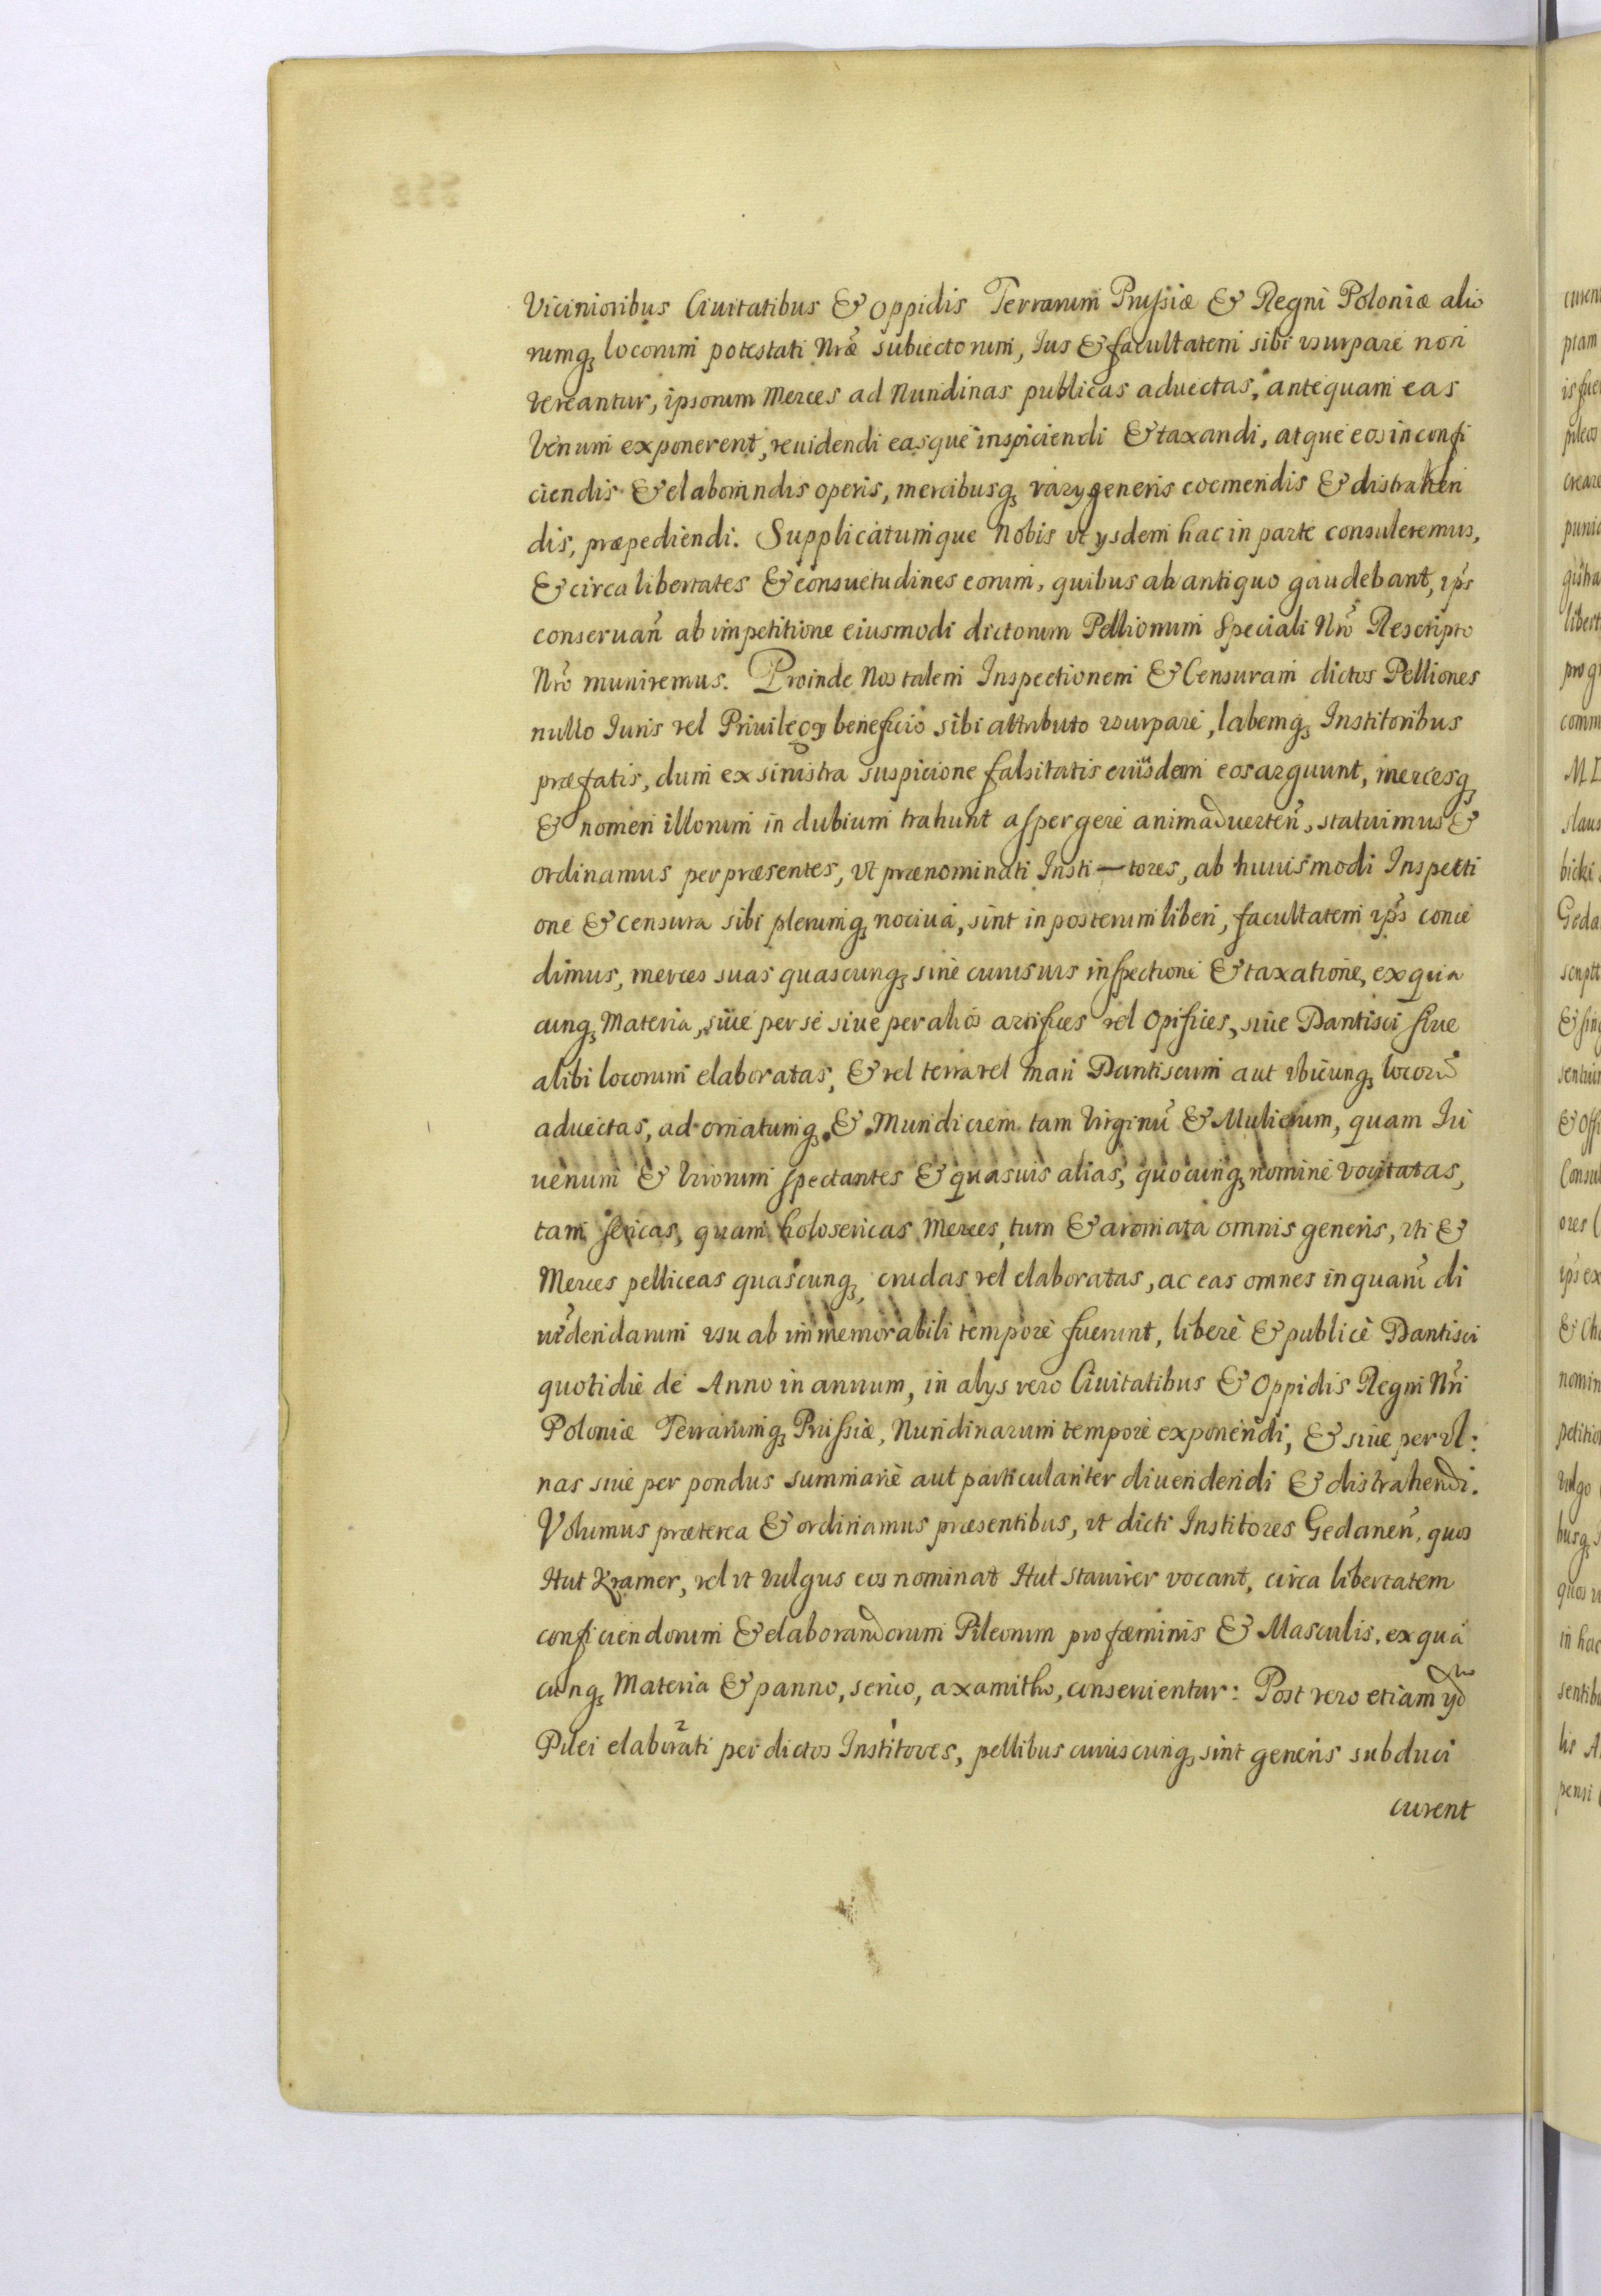 Vicinioribus Ciuitatibus & Oppidis Terrarum Prussiæ & Regni Poloniæ alio
rumq₃ locorum potestati Nræ̃ subiectorum, Ius & facultatem sibi usurpare non
vereantur, ipsorum Merces ad Nundinas publicas aduectas, antequam eas
Venum exponerent, reuidendi easque inspiciendi & taxandi, atque eos in confi
ciendis & elaborandis operis, mercibusq₃ varÿ generis coemendis & distrahen
dis, præpediendi. Supplicatumque Nobis vt ysdem hac in parte consuleremus,
& circa libertates & consuetudines eorum, quibus ab antiquo gaudebant, ip̃s
conseruañ ab impetitione eiusmodi dictorum Pellionum Speciali Nrõ Rescripto
Nrõ muniremus. Proinde Nos talem Inspectionem & Censuram dictos Pelliones
nullo Iuris vel Priuilegy beneficio sibi attributo usurpare, labemq₃ Institoribus
præfatis, dum ex sinistra suspicione falsitatis eiusdem eos arguunt, mercesq₃
& nomen illorum in dubium trahunt aspergere animaduerteñ, statuimus &
ordinamus per præsentes, vt prænominati Insti—tores, ab huiusmodi Inspecti
one & Censura sibi plerumq₃ nociua, sint in posterum liberi, facultatem ip̃s conce
dimus, merces suas quascunq₃ sine cuiusuis inspectione & taxatione, ex qua
cunq₃ Materia, siue per se siue per alios artifices vel Opifices, siue Dantisci siue
alibi locorum elaboratas, & vel terra vel mari Dantiscum aut vbicunq₃ locorũ
aduectas, ad ornatumq₃ & Mundiciem tam Virginũ & Mulierum, quam Iu
uenum & Virorum spectantes & quasuis alias, quocunq₃ nomine vocitatas,
tam sericas, quam holosericas Merces, tum & aromata omnis generis, vti &
Merces pelliceas quascunq₃, crudas vel elaboratas, ac eas omnes in quarũ di
uẽdendarum usu ab immemorabili tempore fuerunt, liberè & publicè Dantisci
quotidie de Anno in annum, in alys vero Ciuitatibus & Oppidis Regni Nrĩ
Poloniæ Terrarumq₃ Prussiæ, Nundinarum tempore exponendi, & siue per vl:
nas siue per pondus summariè aut particulariter diuendendi & distrahendi.
Volumus præterea & ordinamus præsentibus, vt dicti Institores Gedaneñ, quos
Hut Kramer, vel vt vulgus eos nominat Hut Stavirer vocant, circa libertatem
conficiendorum & elaborandorum Pileorum pro fæminis & Masculis, ex quà
cunq₃ Materia & panno, serico, axamitho, conseruentur: Post vero etiam
Pilei elaborati per dictos Institores, pellibus cuiuscunq₃ sint generis subduci
curent